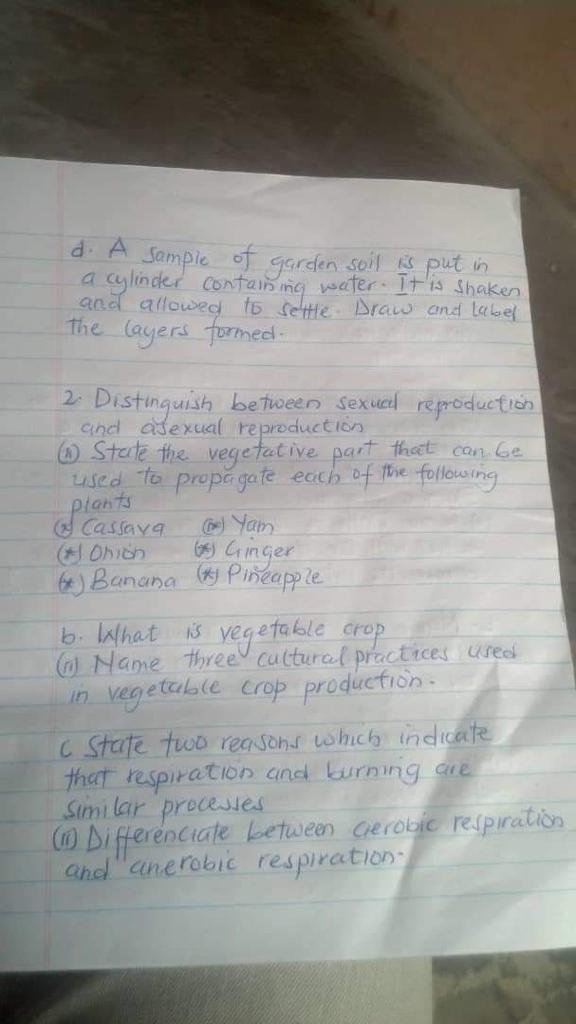 d. A sample of garden soil is put in
a cylinder containing water. It is shaken
and allowed to settle. Draw and label
the layers formed.
2. Distinguish between sexual reproduction
and asexual reproduction
(ii) State the vegetative part that can be
used to propagate each of the following
plants
(*) Cassava (*) Yam
(*) Onion (*) Ginger
(*) Banana (*) Pineapple
b. What is vegetable crop
(ii) Name three cultural practices used
in vegetable crop production.
c State two reasons which indicate
that respiration and burning are
similar processes
(ii) Differenciate between aerobic respiration
and anerobic respiration.